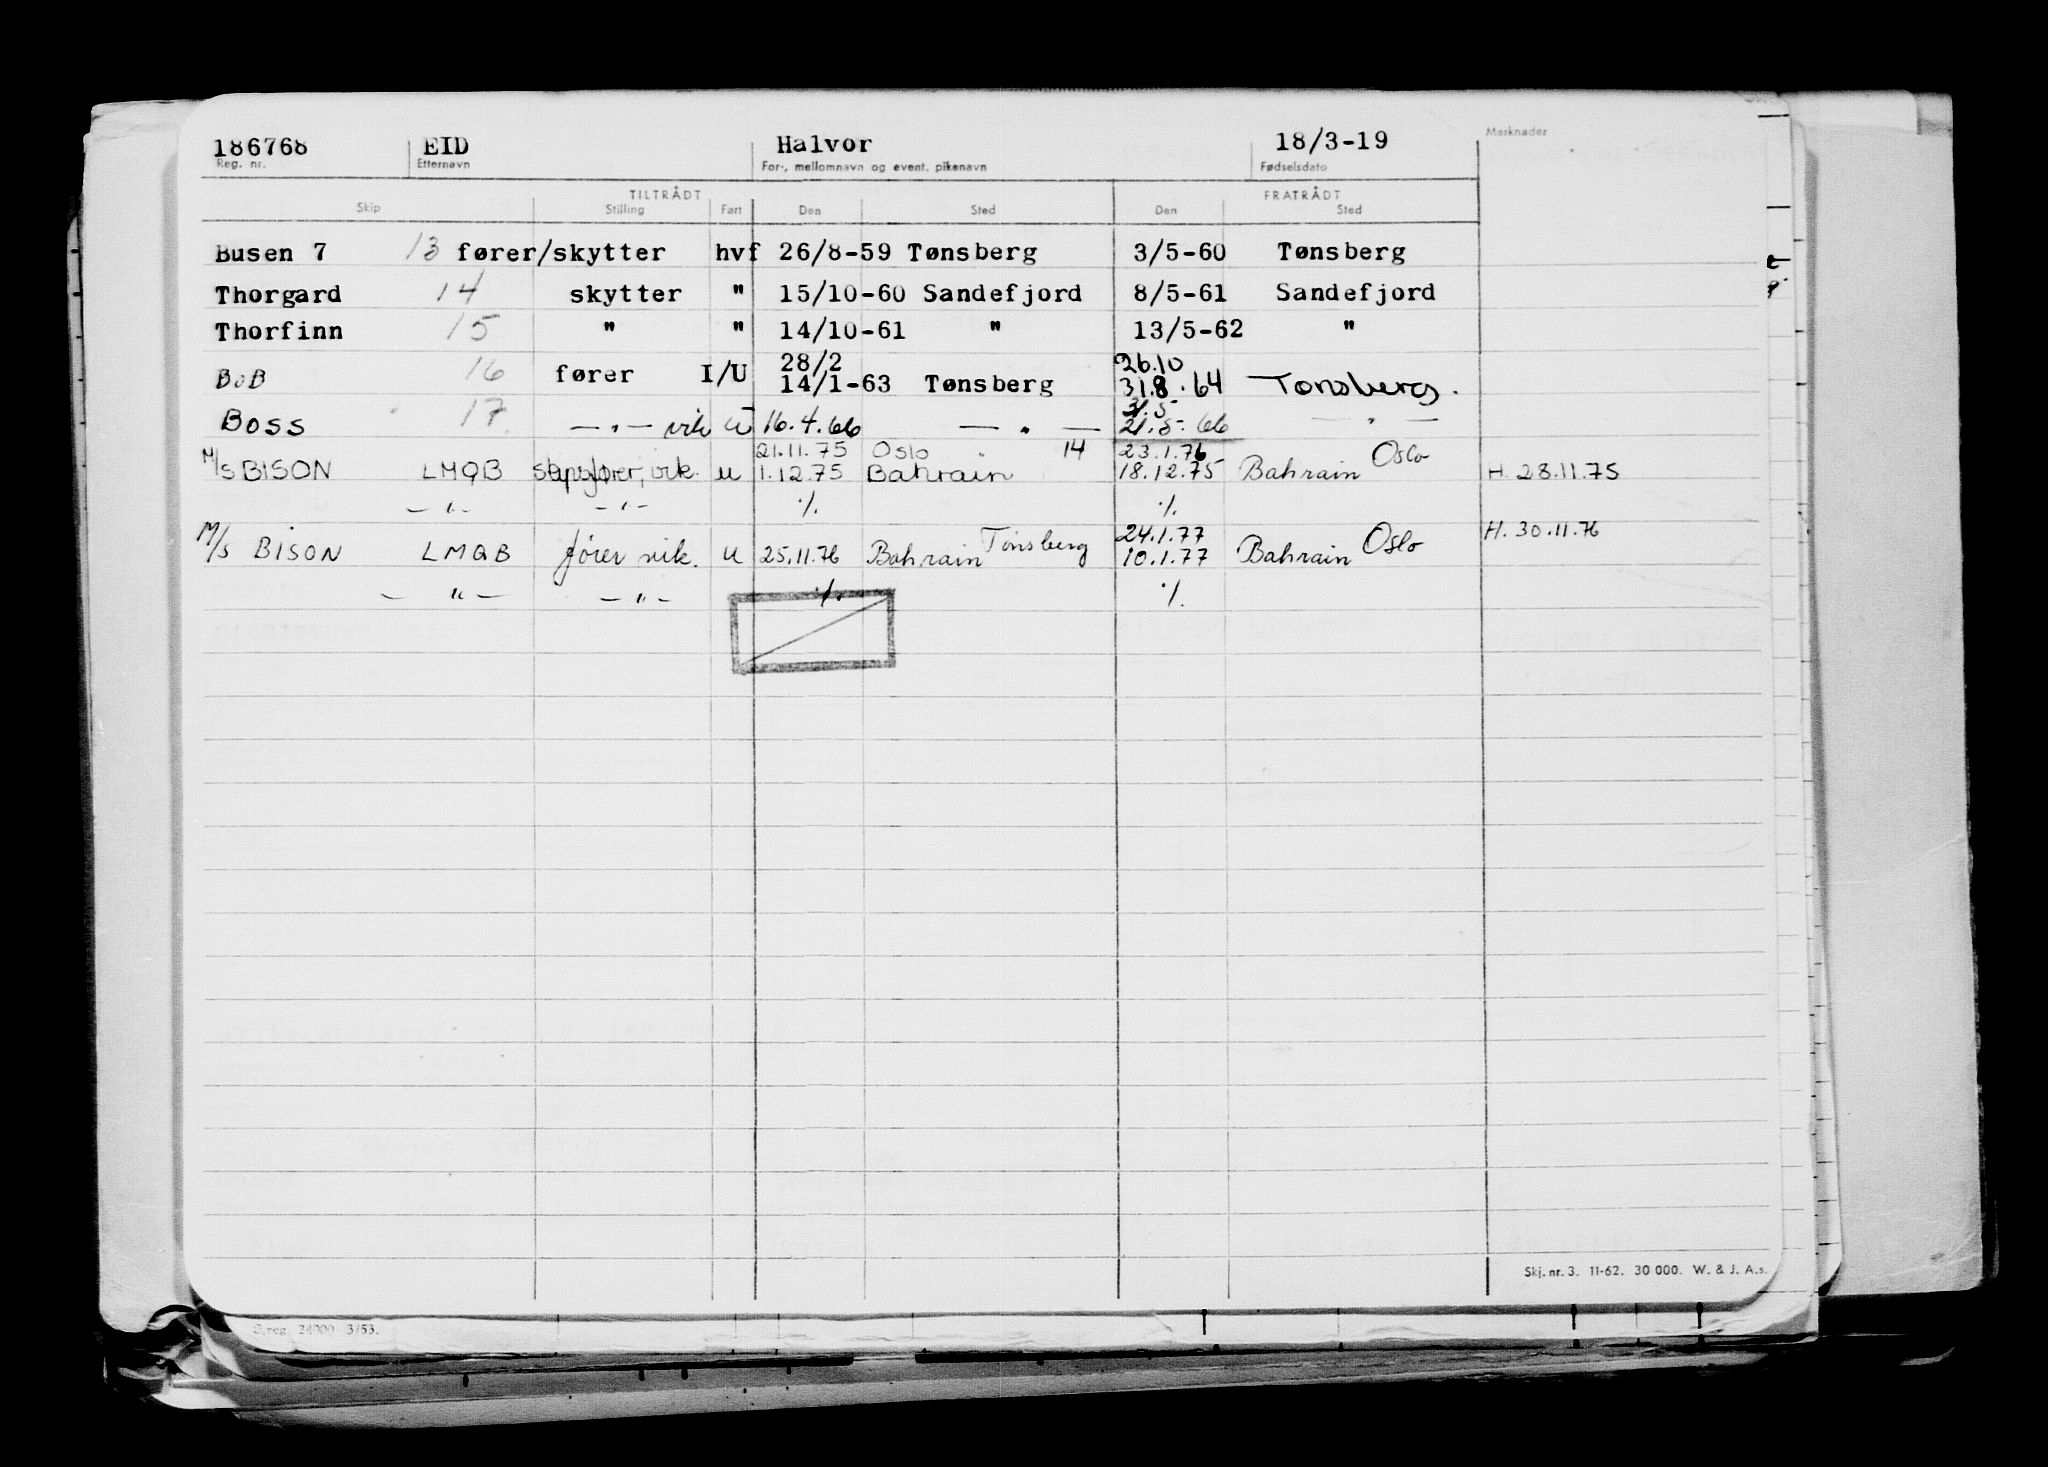 186768 EID Halvor 18/3-19 Merknader
Reg. nr. Etternavn For-, mellomnavn og event. pikenavn Fødselsdato
TILTRÅDT FRATRÅDT
Skip Stilling Fart Den Sted Den Sted
Busen 7 13 fører/skytter hvf 26/8-59 Tønsberg 3/5-60 Tønsberg
Thorgard 14 skytter " 15/10-60 Sandefjord 8/5-61 Sandefjord
Thorfinn 15 " " 14/10-61 " 13/5-62 "
28/2 26.10
BoB 16 fører I/U 14/1-63 Tønsberg 31.8.64 Tønsberg.
31.5
Boss 17. — " — vik U 16.4.66 — " — 21.5.66 — " —
21.11.75 Oslo 14 23.1.76 Oslo
M/S BISON LMQB skipsfører, vik. u 1.12.75 Bahrain 18.12.75 Bahrain H. 28.11.75
— " — — " — ٪. ٪.
24.1.77 H. 30.11.76
M/S BISON LMQB fører vik. u 25.11.76 Bahrain Tønsberg 10.1.77 Bahrain Oslo
— " — — " — ٪. ٪.
Skj. nr. 3. 11-62. 30 000. W. & J. A.s.
S.reg. 24000 3/53.